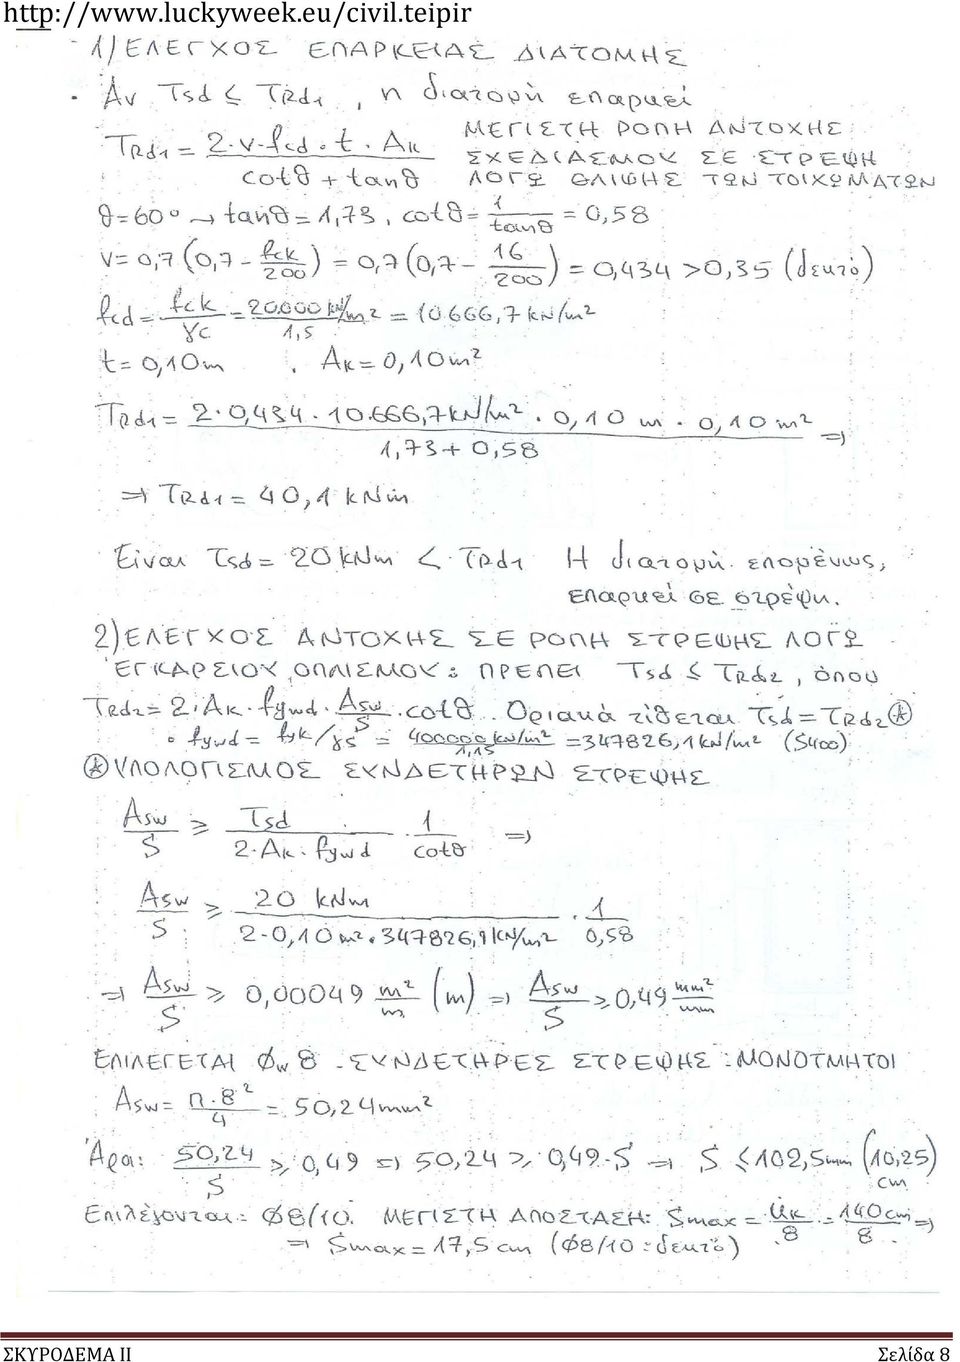 http://www.luckyweek.eu/civil.teipir
1) ΕΛΕΓΧΟΣ ΕΠΑΡΚΕΙΑΣ ΔΙΑΤΟΜΗΣ
· Αν Tsd ≤ TRd1 , η διατομή επαρκεί
TRd1 = 2·v·fcd·t·Ak / (cotθ + tanθ) ΜΕΓΙΣΤΗ ΡΟΠΗ ΑΝΤΟΧΗΣ
ΣΧΕΔΙΑΣΜΟΥ ΣΕ ΣΤΡΕΨΗ
ΛΟΓΩ ΘΛΙΨΗΣ ΤΩΝ ΤΟΙΧΩΜΑΤΩΝ
θ=60° → tanθ = 1,73 , cotθ = 1/tanθ = 0,58
v = 0,7 (0,7 - fck/200) = 0,7 (0,7 - 16/200) = 0,434 > 0,35 (δεκτό)
fcd = fck/γc = 20.000 kN/m2 / 1,5 = 10.666,7 kN/m2
t = 0,10m , Ak = 0,10m2
TRd1 = 2·0,434·10.666,7 kN/m2 · 0,10 m · 0,10 m2 / (1,73 + 0,58) ⇒
⇒ TRd1 = 40,1 kNm
Είναι Tsd = 20 kNm < TRd1 Η διατομή επομένως,
επαρκεί σε στρέψη.
2) ΕΛΕΓΧΟΣ ΑΝΤΟΧΗΣ ΣΕ ΡΟΠΗ ΣΤΡΕΨΗΣ ΛΟΓΩ
ΕΓΚΑΡΣΙΟΥ ΟΠΛΙΣΜΟΥ : ΠΡΕΠΕΙ Tsd ≤ TRd2 , όπου
TRd2 = 2·Ak·fywd·Asw/s·cotθ. Οριακά τίθεται Tsd = TRd2 (*)
∘ fywd = fyk/γs = 400000 kN/m2 / 1,15 = 347826,1 kN/m2 (S400)
(*) ΥΠΟΛΟΓΙΣΜΟΣ ΣΥΝΔΕΤΗΡΩΝ ΣΤΡΕΨΗΣ
Asw/S ≥ Tsd / (2·Ak·fywd) · 1/cotθ ⇒
Asw/S ≥ 20 kNm / (2·0,10 m2·347826,1 kN/m2) · 1/0,58
⇒ Asw/S ≥ 0,00049 m2/m (m) ⇒ Asw/S ≥ 0,49 mm2/mm
ΕΠΙΛΕΓΕΤΑΙ Φw 8 - ΣΥΝΔΕΤΗΡΕΣ ΣΤΡΕΨΗΣ : ΜΟΝΟΤΜΗΤΟΙ
Asw = π·8²/4 = 50,24 mm2
Άρα: 50,24/S ≥ 0,49 ⇒ 50,24 ≥ 0,49·S ⇒ S ≤ 102,5mm (10,25)
cm
Επιλέγονται: Φ8/10. ΜΕΓΙΣΤΗ ΑΠΟΣΤΑΣΗ: Smax = Uk/8 = 140cm/8 ⇒
⇒ Smax = 17,5 cm (Φ8/10 : δεκτό)
ΣΚΥΡΟΔΕΜΑ ΙΙ Σελίδα 8